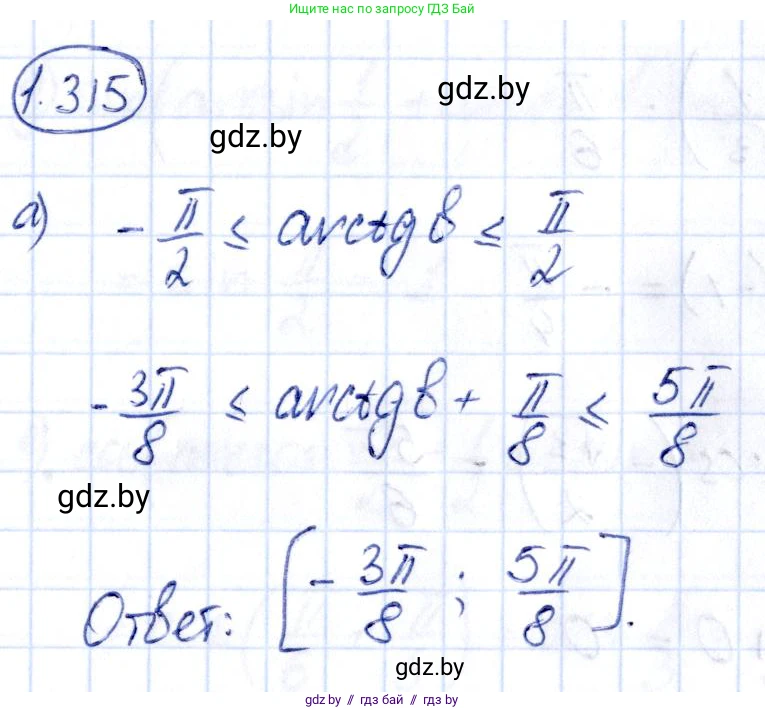 Ищите нас по запросу ГДЗ Бай
1.315
gdz.by
gdz.by
а) -π/2 ≤ arctg b ≤ π/2
-3π/8 ≤ arctg b + π/8 ≤ 5π/8
gdz.by
Ответ: [-3π/8 ; 5π/8].
gdz.by
gdz.by // гдз бай // гдз by